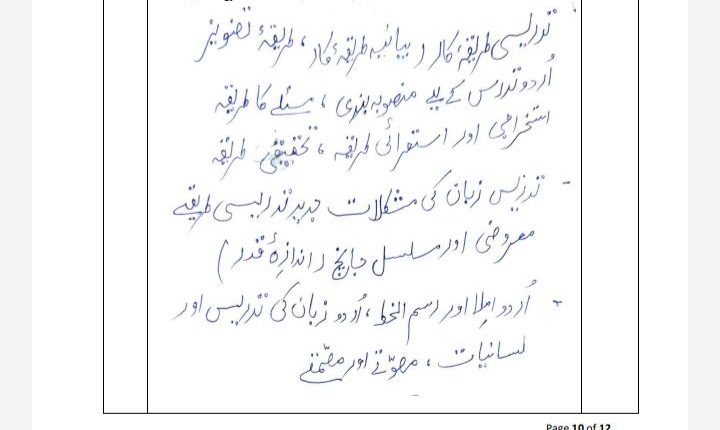 تدریسی طریقۂ کار (بیانیہ طریقۂ کار، طریقۂ تفویض
اُردو تدریس کے لیے منصوبہ بندی، مسئلے کا طریقہ
استخراجی اور استقرائی طریقہ، تحقیقی طریقہ
- تدریس زبان کی مشکلات جدید تدریسی طریقے
معروضی اور مسلسل جانچ (اندازۂ قدر)
- اُردو املا اور رسم الخط، اُردو زبان کی تدریس اور
لسانیات، مصوّتے اور مصمّتے
Page 10 of 12